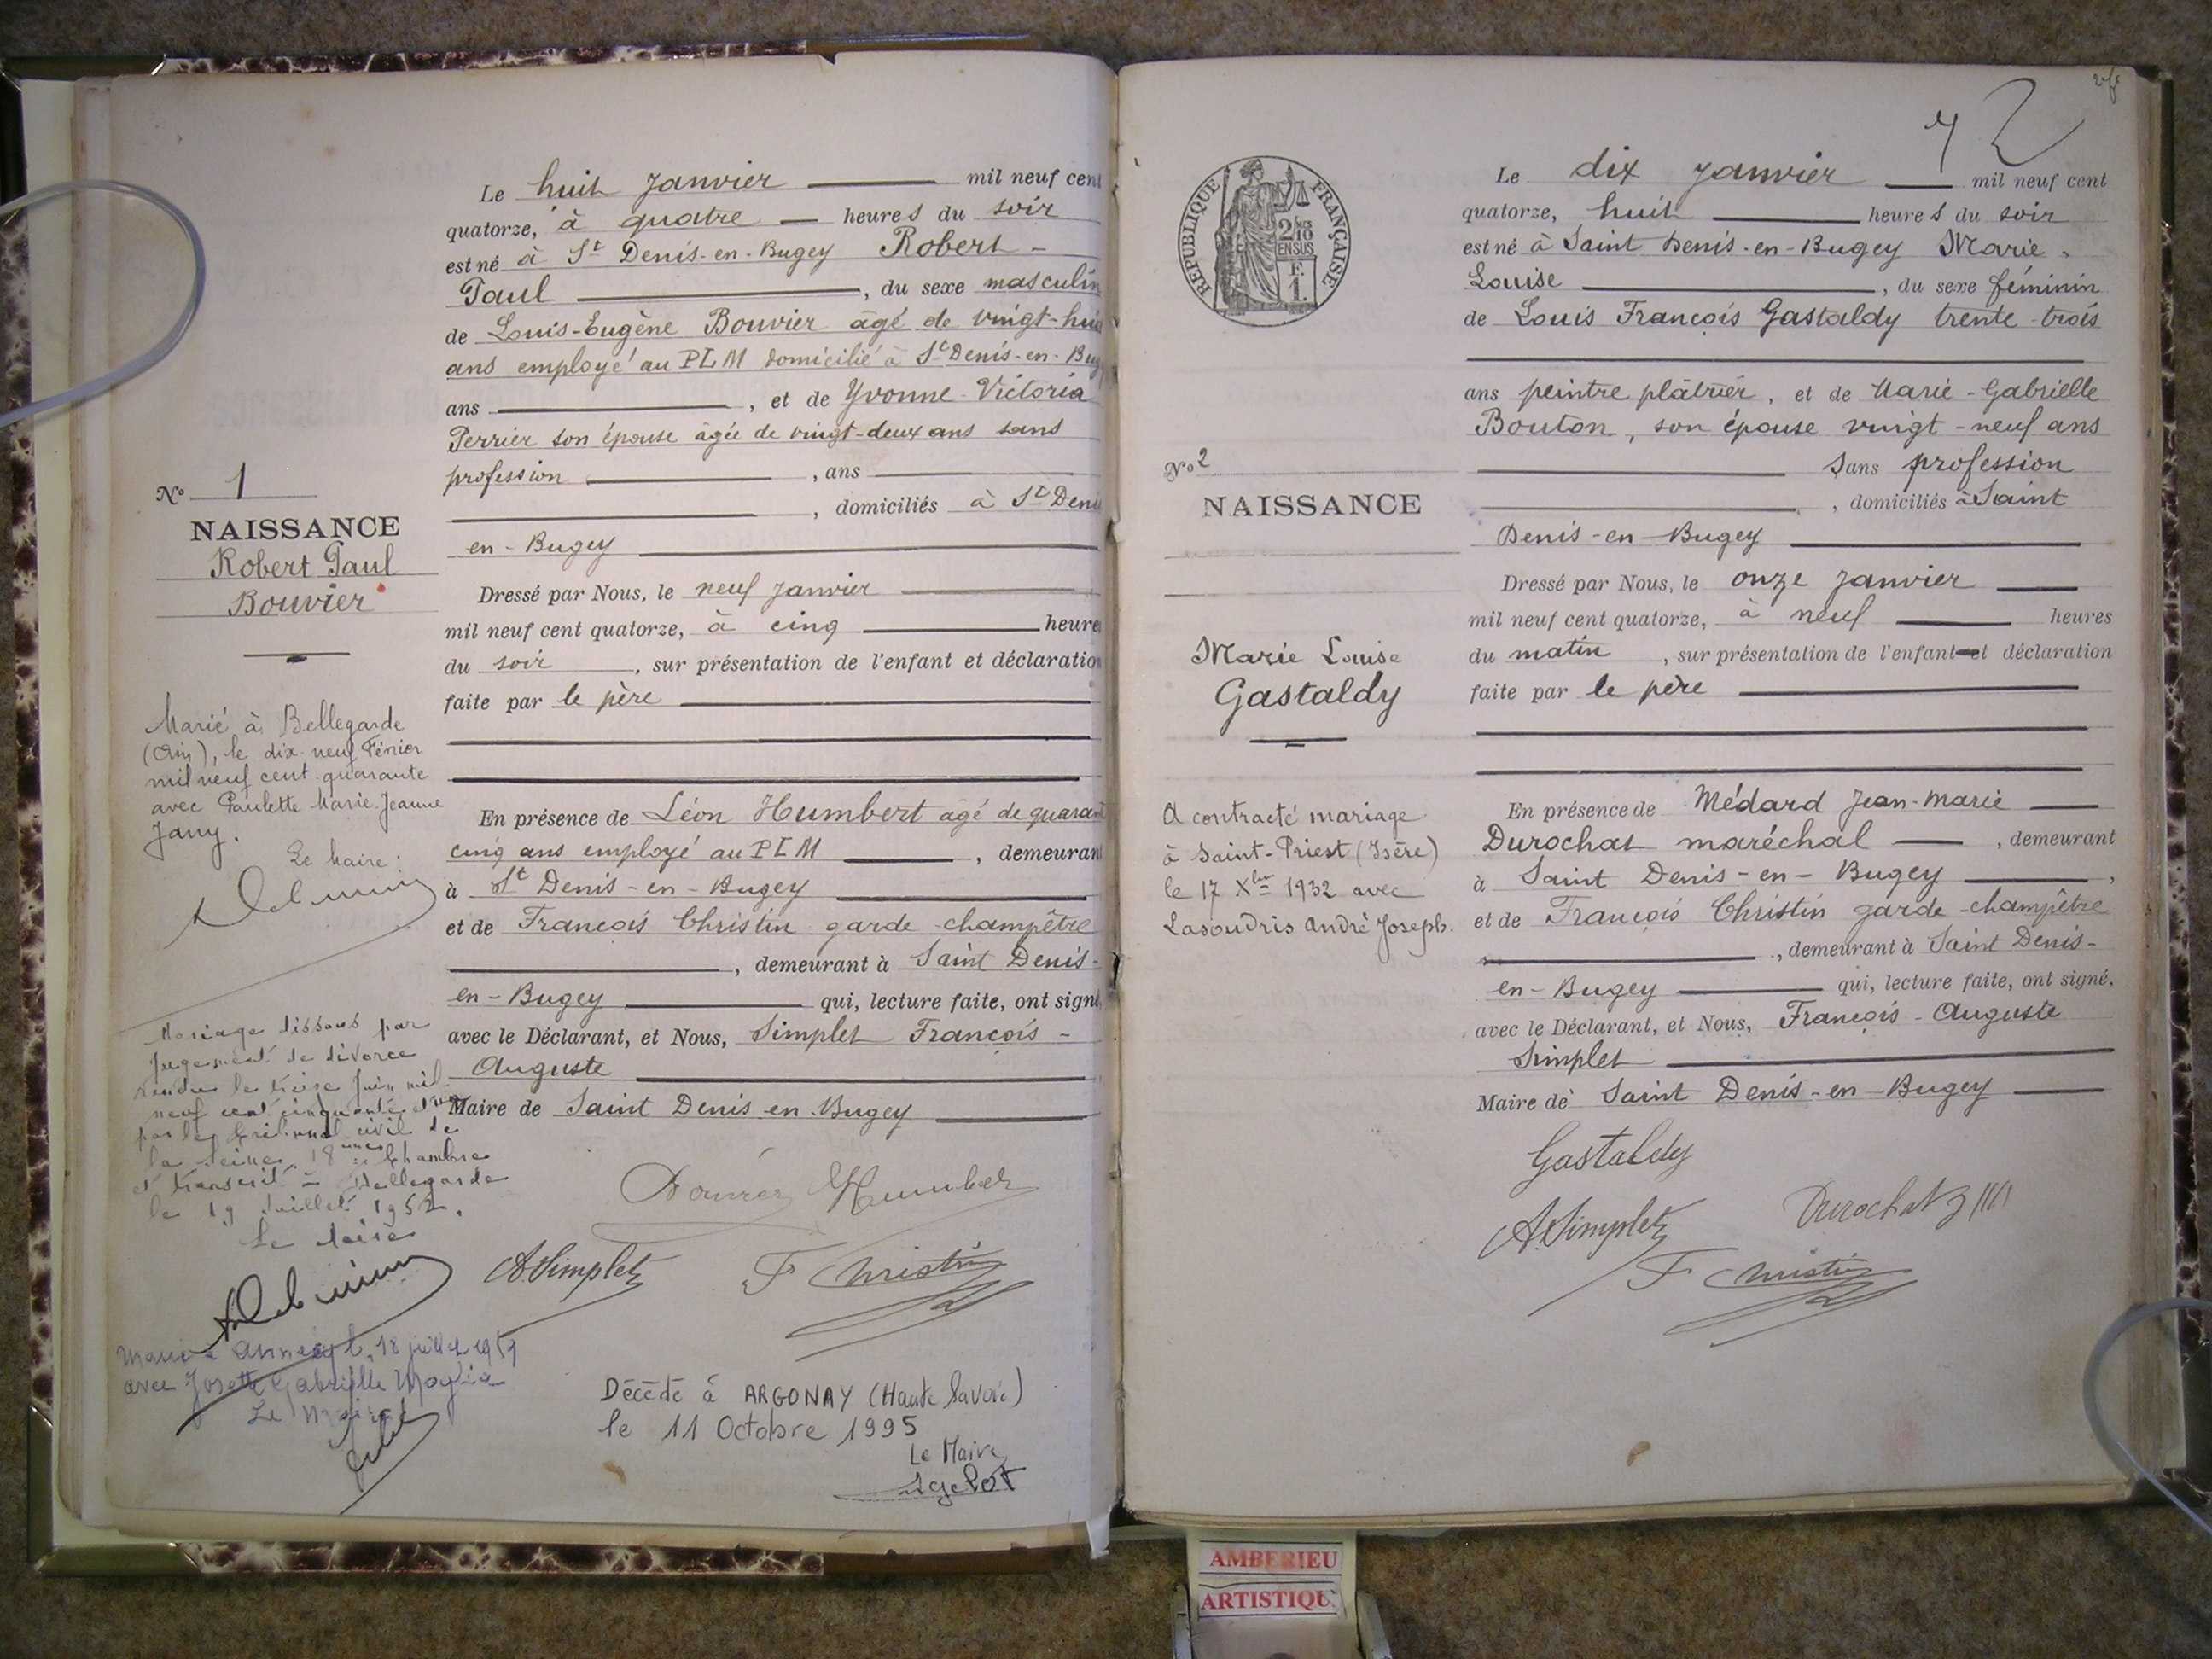 Le huit Janvier mil neuf cent
quatorze, à quatre heures du soir
est né à St Denis-en-Bugey Robert-
Paul, du sexe masculin
de Louis-Eugène Bouvier âgé de vingt-huit
ans employé au PLM domicilié à St Denis-en-Bug
ans, et de Yvonne-Victoria
Perrier son épouse âgée de vingt-deux ans sans
profession, ans
, domiciliés à St Denis
en-Bugey
No 1
NAISSANCE
Robert Paul
Bouvier
Dressé par Nous, le neuf Janvier
mil neuf cent quatorze, à cinq heures
du soir, sur présentation de l'enfant et déclaration
faite par le père
En présence de Léon Humbert âgé de quarant
cinq ans employé au PLM, demeurant
à St Denis-en-Bugey
et de François Christin garde-champêtre
, demeurant à Saint Denis-
en-Bugey qui, lecture faite, ont signé
avec le Déclarant, et Nous, Simplet François-
Auguste
Maire de Saint Denis en Bugey
Marié à Bellegarde
(Ain), le dix-neuf Février
mil neuf cent quarante
avec Paulette Marie-Jeanne
Jany.
Le Maire:
Mariage dissous par
jugement de divorce
rendu le treize Juin mil
neuf cent cinquante et un
par le tribunal civil de
la Seine 18ème Chambre
et transcrit à Bellegarde
le 19 Juillet 1952.
Le Maire
Marié à Annecy le 18 juillet 1959
avec Josette Gabrielle
Le Maire
Bouvier Humbert
A. Simplet F Christin
Décédé à ARGONAY (Haute Savoie)
le 11 Octobre 1995
Le Maire
2
Le dix Janvier mil neuf cent
quatorze, huit heures du soir
est né à Saint Denis-en-Bugey Marie-
Louise, du sexe féminin
de Louis François Gastaldy trente-trois
ans peintre plâtrier, et de Marie-Gabrielle
Bouton, son épouse vingt-neuf ans
Sans profession
, domiciliés à Saint
Denis-en-Bugey
REPUBLIQUE FRANÇAISE
2/10
EN SUS
F.
1.
No 2
NAISSANCE
Marie Louise
Gastaldy
Dressé par Nous, le onze Janvier
mil neuf cent quatorze, à neuf heures
du matin, sur présentation de l'enfant et déclaration
faite par le père
En présence de Médard Jean-Marie
Durochat maréchal, demeurant
à Saint Denis-en-Bugey,
et de François Christin garde-champêtre
, demeurant à Saint Denis-
en-Bugey qui, lecture faite, ont signé,
avec le Déclarant, et Nous, François-Auguste
Simplet
Maire de Saint Denis-en-Bugey
A contracté mariage
à Saint-Priest (Isère)
le 17 Xbre 1932 avec
Lasoudris André Joseph.
Gastaldy
A. Simplet Durochat
F Christin
AMBERIEU
ARTISTIQU